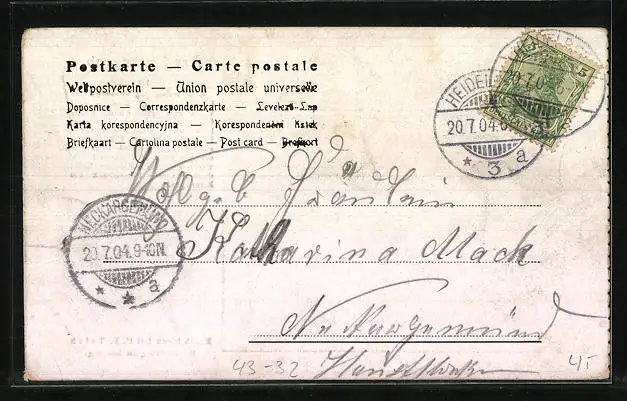 Postkarte — Carte postale
Weltpostverein — Union postale universelle
Doposnice — Correspondenzkarte — Levelezö-Lap
Karta korespondencyjna — Korespondenční lístek
Briefkaart — Cartolina postale — Post card — Brefkort
HEIDELBERG
20.7.04
3 a
5
5
NECKARGEMÜND
20.7.04. 9-10N.
a
Wohlgeb Fräulein
Katharina Mack
Neckargemünd
Hauptstraße
43-32